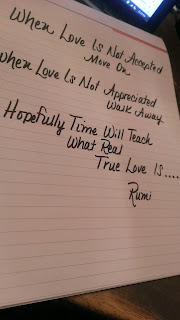 When Love Is Not Accepted
Move On
When Love Is Not Appreciated
Walk Away
Hopefully Time Will Teach
What Real
True Love Is.....
Rumi